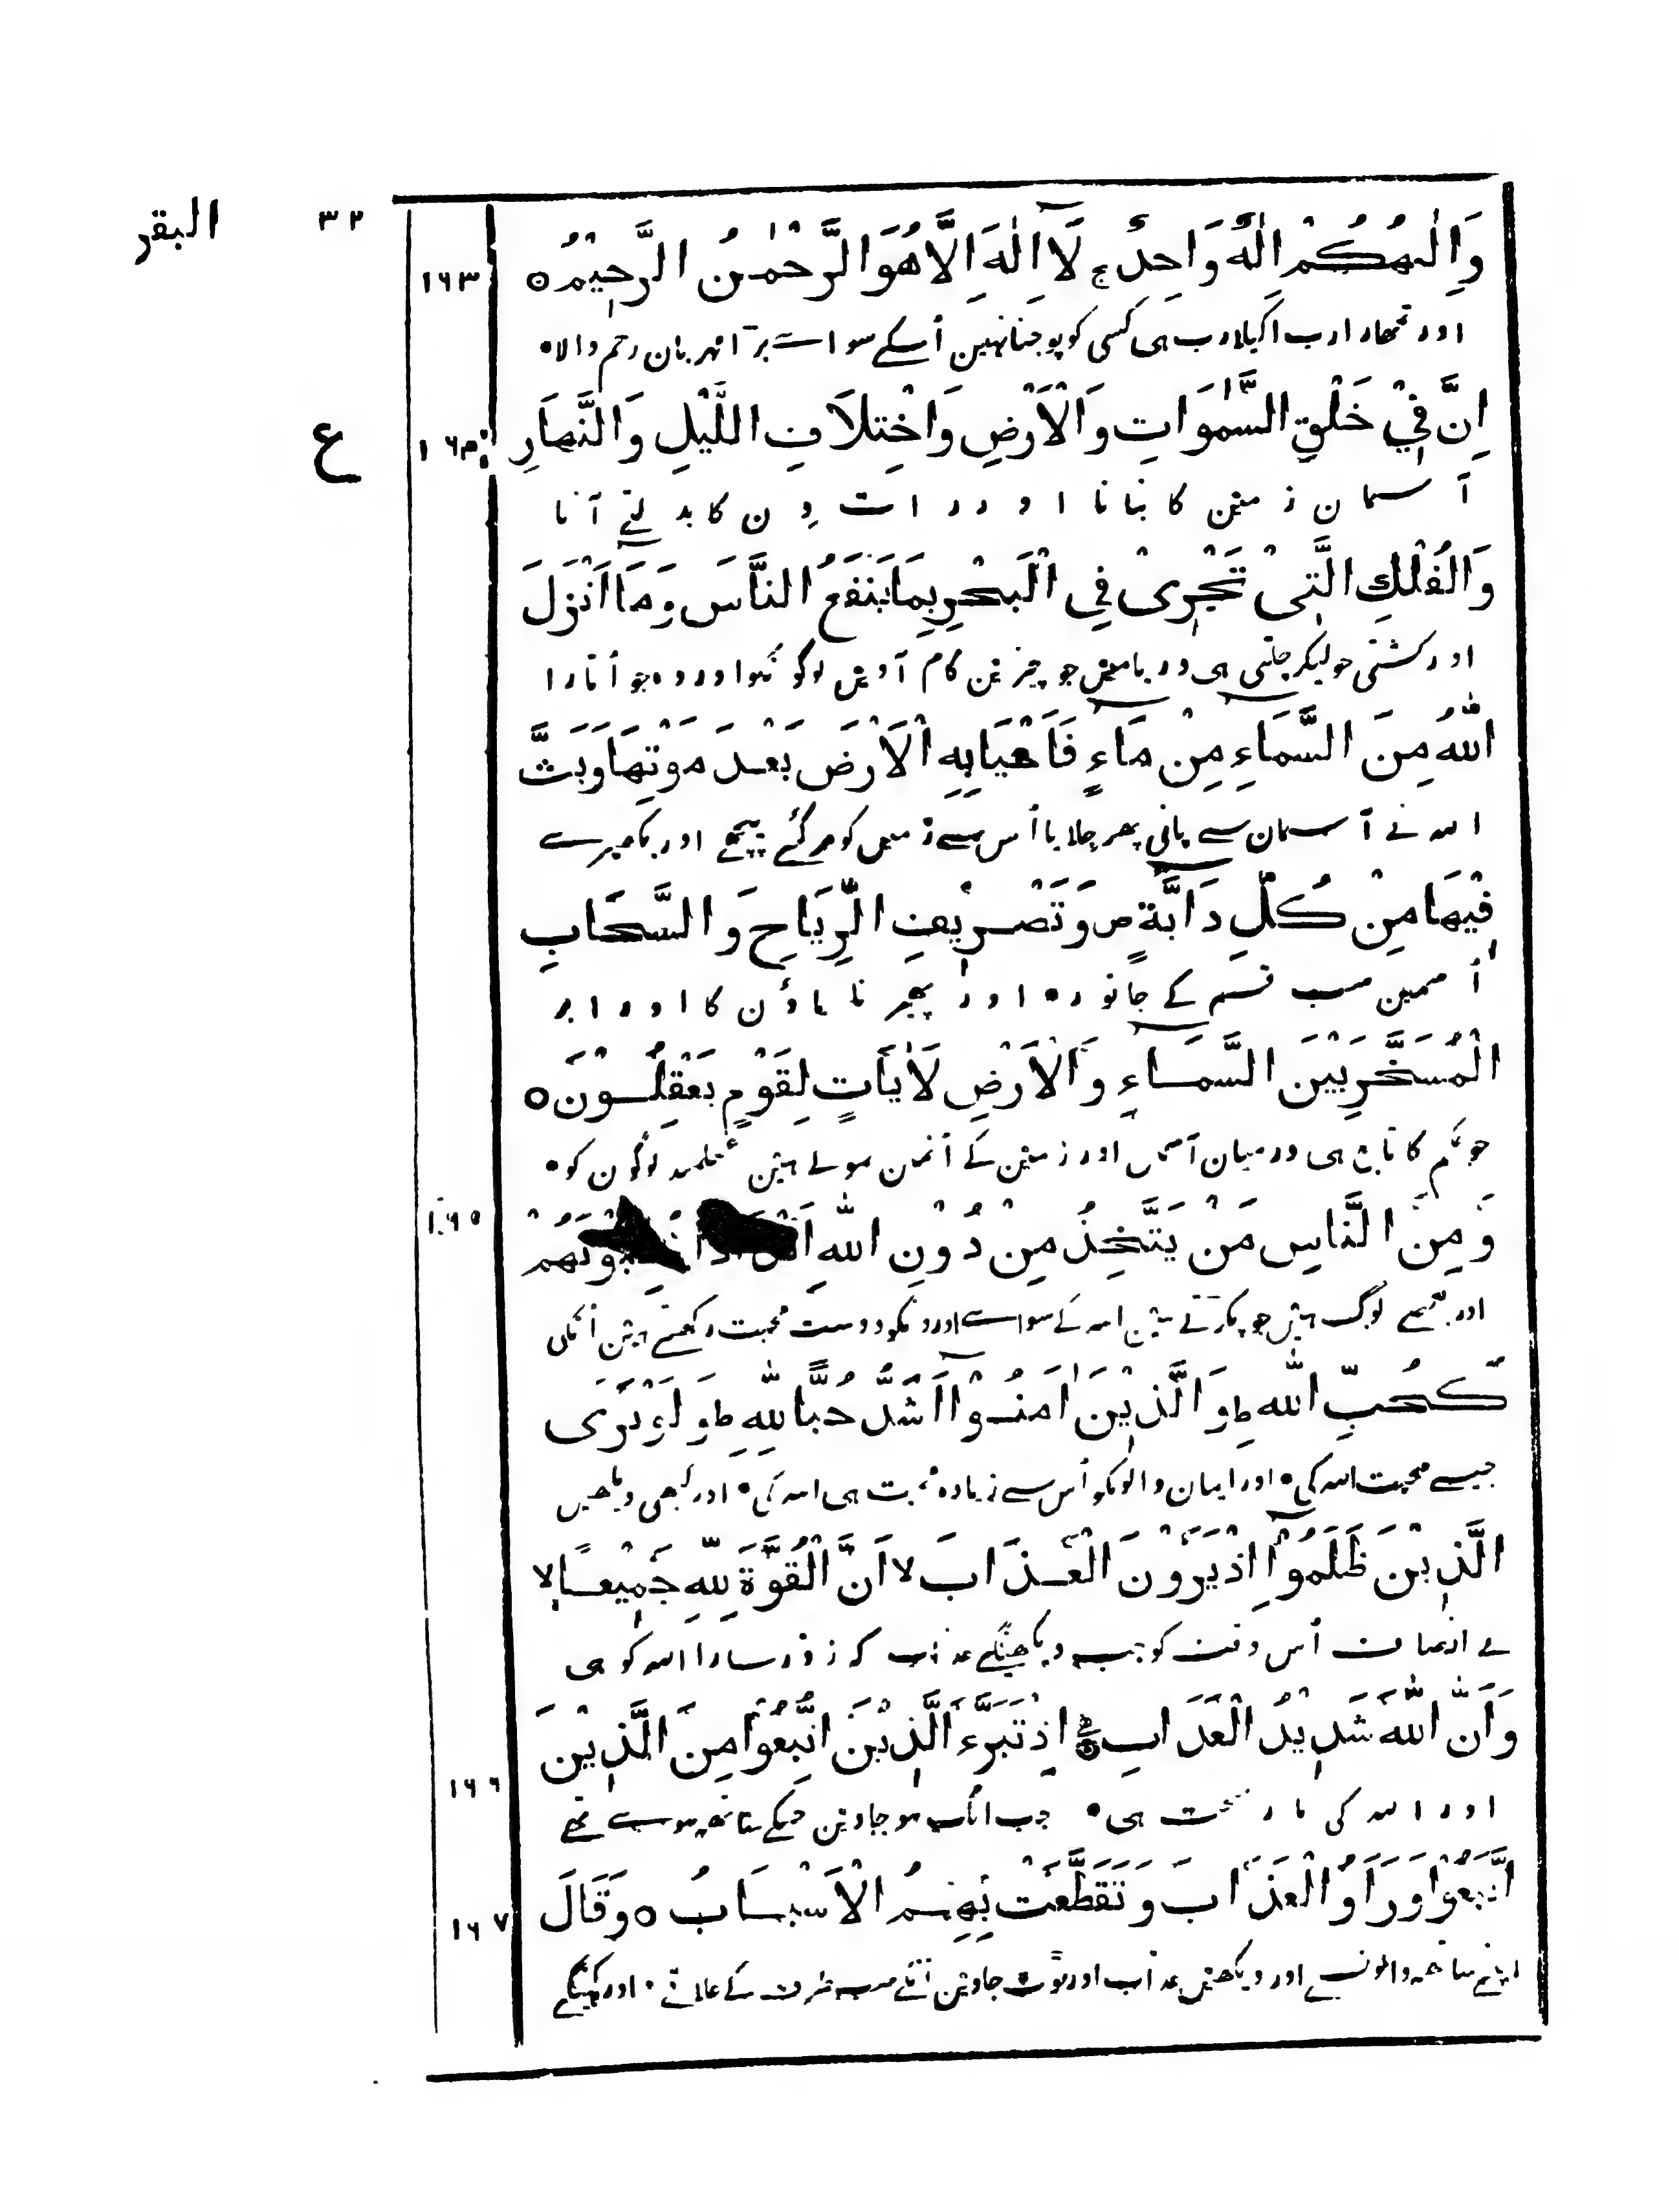 البقر
٣٢
وَاِلٰهُكُمْ اِلٰهٌ وَّاحِدٌ ج لَآ اِلٰهَ اِلَّا هُوَ الرَّحْمٰنُ الرَّحِيْمُ ○
١٦٣
اور تمھارا رب اکیلا رب هی کسی کو پوجنا نہین اُسکے سوا سے بڑا مہربان رحم والا •
اِنَّ فِيْ خَلْقِ السَّمٰوَاتِ وَالْاَرْضِ وَاخْتِلَافِ اللَّيْلِ وَالنَّهَارِ
١٦٤
ع
آسمان زمین کا بنانا اور رات دن کا بدلتے آنا
وَالْفُلْكِ الَّتِيْ تَجْرِىْ فِي الْبَحْرِ بِمَا يَنْفَعُ النَّاسَ وَمَآ اَنْزَلَ
اور کشتی جو لیکر چلتی هی دریا مین جو چیزین کام آوین لوگونکو اور وہ جو اُتارا
اللّٰهُ مِنَ السَّمَاءِ مِنْ مَّاءٍ فَاَحْيَا بِهِ الْاَرْضَ بَعْدَ مَوْتِهَا وَبَثَّ
اللہ نے آسمان سے پانی پھر جلایا اُس سے زمین کو مر گئے پیچھے اور بکھیرے
فِيْهَا مِنْ كُلِّ دَابَّةٍ ص وَّتَصْرِيْفِ الرِّيَاحِ وَالسَّحَابِ
اُسمین سب قسم کے جانور • اور پھیرنا باؤن کا اور ابر
الْمُسَخَّرِ بَيْنَ السَّمَاءِ وَالْاَرْضِ لَاٰيَاتٍ لِقَوْمٍ يَعْقِلُوْنَ ○
جو حکم کا تابع هی درمیان آسمان اور زمین کے اُنمین نمونے هین عقلمند لوگون کو •
وَمِنَ النَّاسِ مَنْ يَتَّخِذُ مِنْ دُوْنِ اللّٰهِ
١٦٥
اور بعضے لوگ هین جو پکڑتے هین اللہ کے سوا سے اورونکو دوست محبت رکھتے هین اُنکی
كَحُبِّ اللّٰهِ ط وَالَّذِيْنَ اٰمَنُوْآ اَشَدُّ حُبًّا لِلّٰهِ ط وَلَوْ تَرَى
جیسے محبت اللہ کی • اور ایمان والونکو اُس سے زیادہ محبت هی اللہ کی • اور کبھی دیکھین
الَّذِيْنَ ظَلَمُوْآ اِذْ يَرَوْنَ الْعَذَابَ لا اَنَّ الْقُوَّةَ لِلّٰهِ جَمِيْعًا لا
بے انصاف اُس وقت کو جب دیکھینگے عذاب کہ زور سارا اللہ کو هی
وَاَنَّ اللّٰهَ شَدِيْدُ الْعَذَابِ ○ اِذْ تَبَرَّءَ الَّذِيْنَ اتُّبِعُوْا مِنَ الَّذِيْنَ
١٦٦
اور اللہ کی مار سخت هی • جب الگ هو جاوین جنکے ساتھ هوے تھے
اتَّبَعُوْا وَرَاَوُا الْعَذَابَ وَتَقَطَّعَتْ بِهِمُ الْاَسْبَابُ ○ وَقَالَ
١٦٧
اپنے ساتھ والونسے اور دیکھین عذاب اور ٹوٹ جاوین اُنکے سب طرف کے علاقے • اور کہینگے